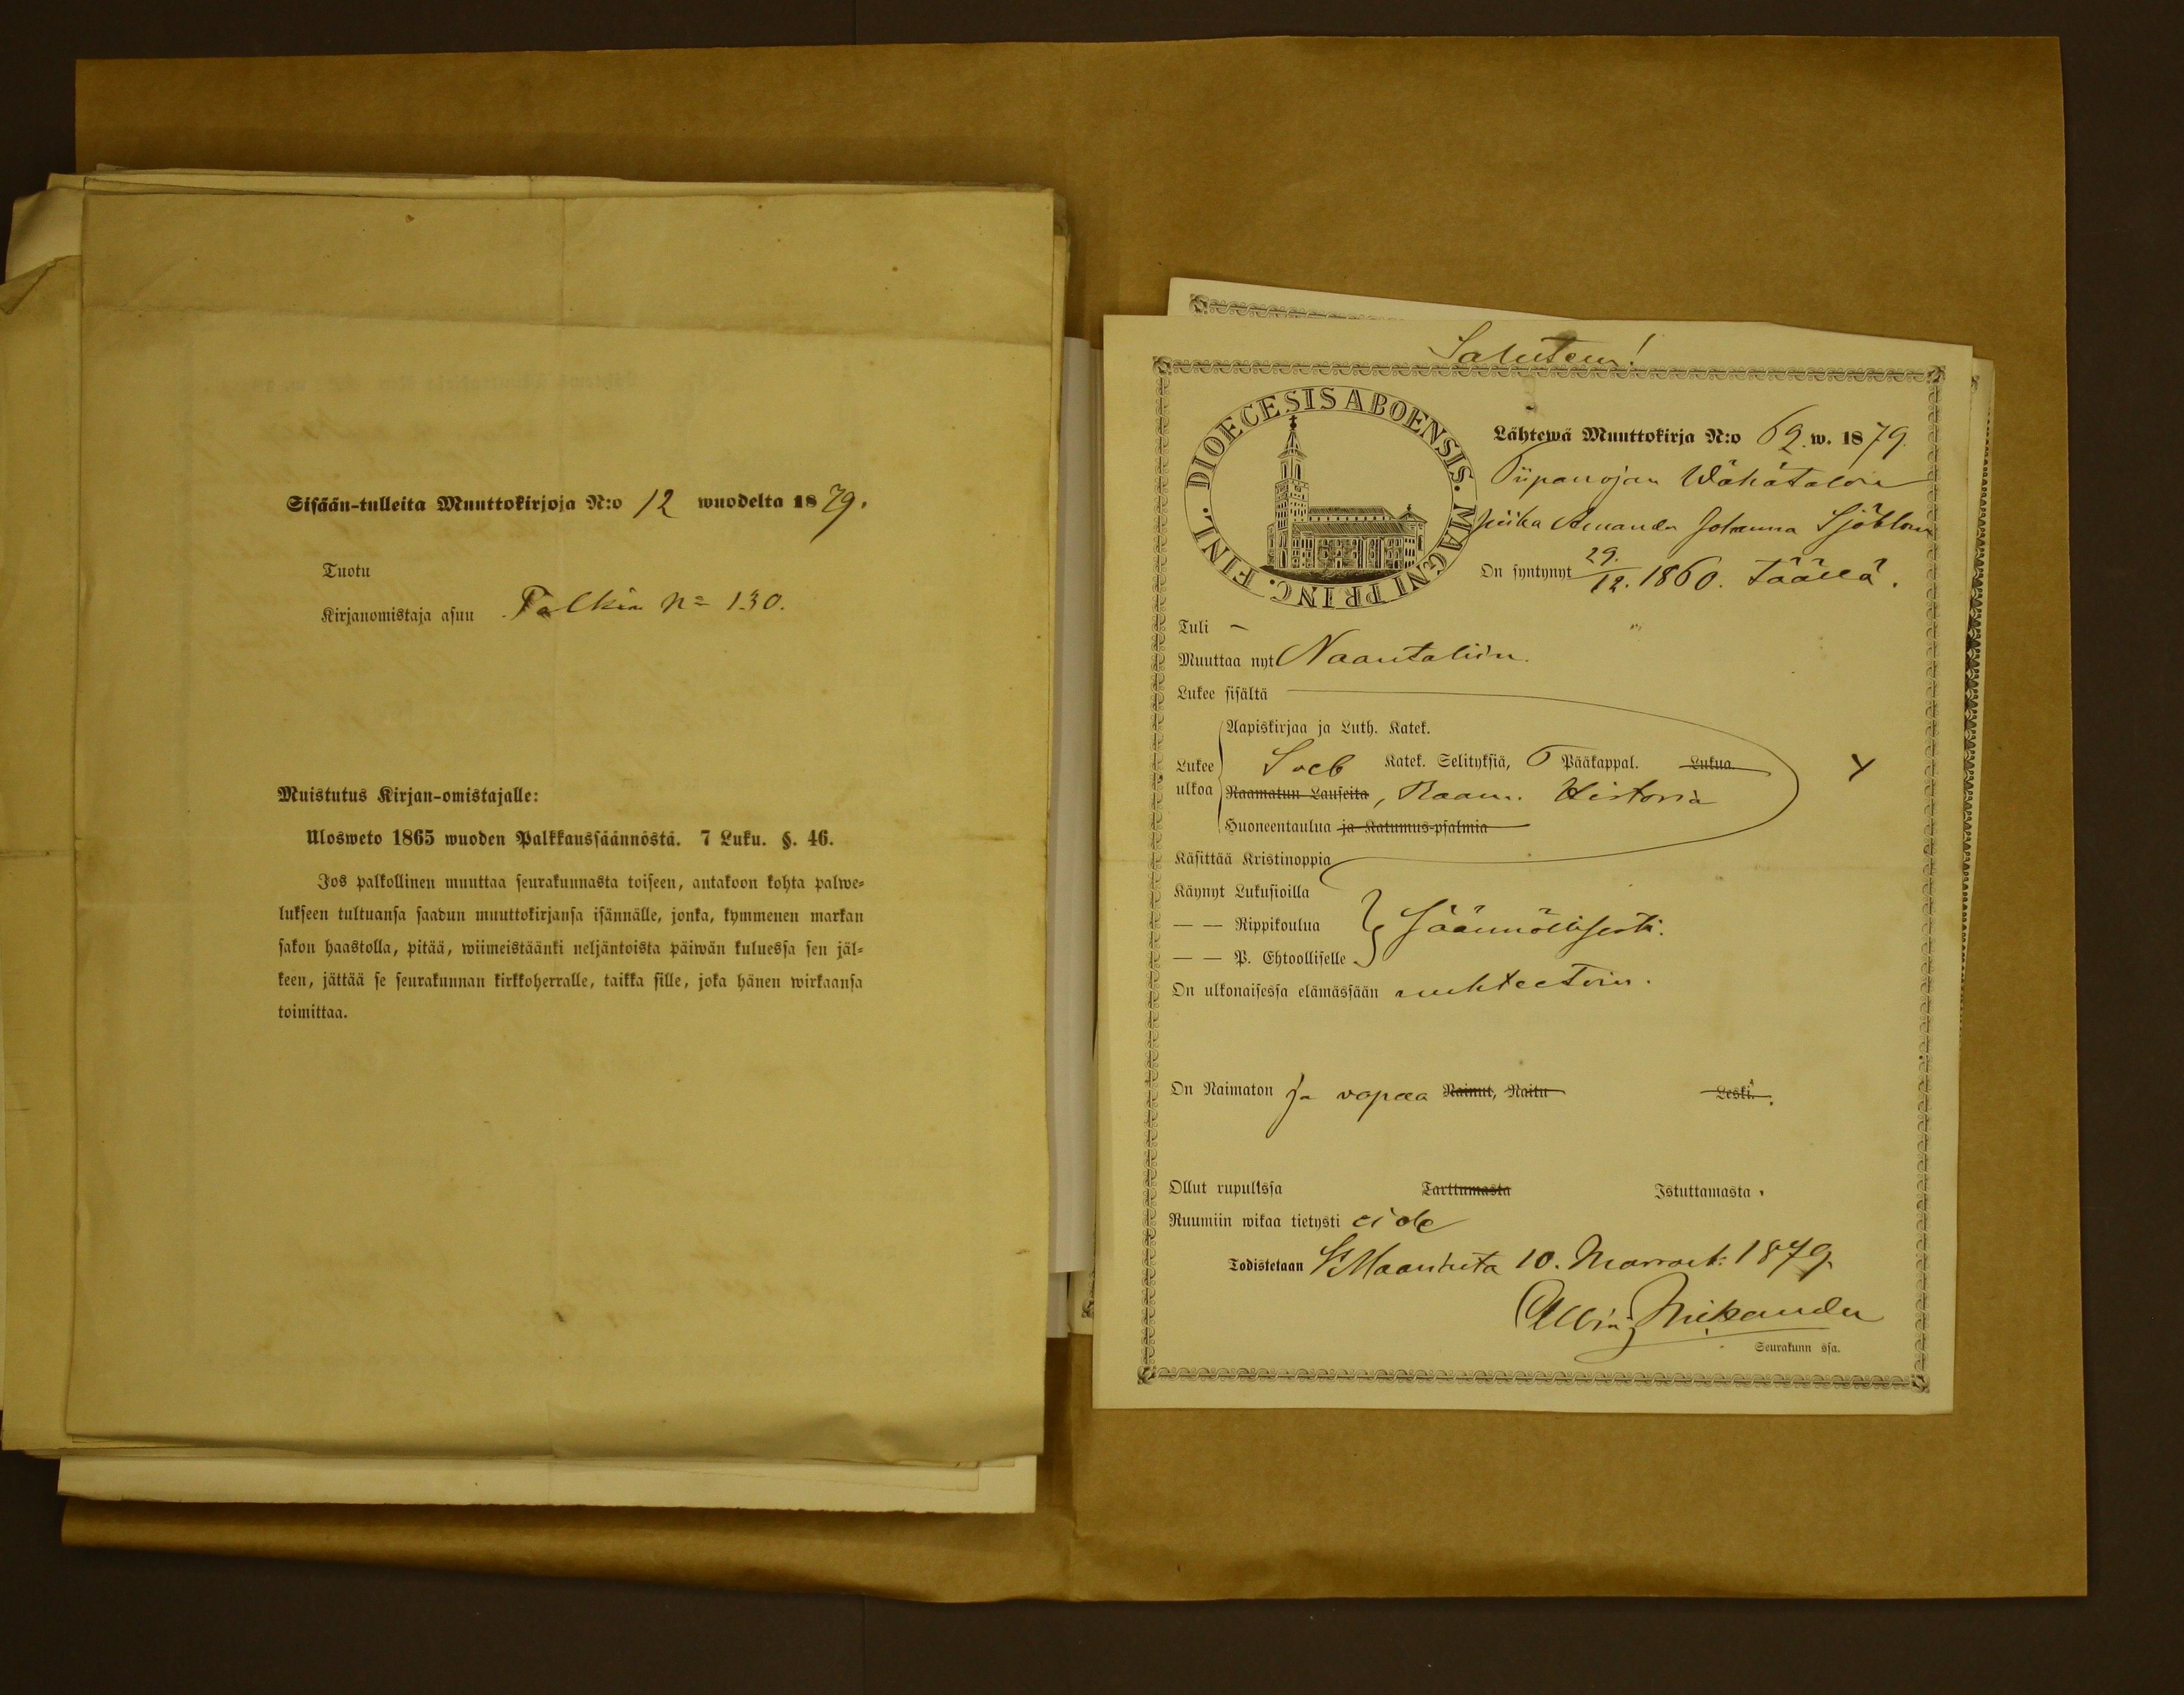 Sisään-tulleita Muuttokirjoja N:o 12 wuodelta 1879.
Tuotu
Kirjanomistaja asuu Talkin No 130.
Muistutus Kirjan-omistajalle:
Ulosweto 1865 wuoden Palkkaussäännöstä. 7 Luku. §. 46.
Jos palkollinen muuttaa seurakunnasta toiseen, antakoon kohta palwe-
lukseen tultuansa saadun muuttokirjansa isännälle, jonka, kymmenen markan
sakon haastolla, pitää, wiimeistäänki neljäntoista päiwän kuluessa sen jäl-
keen, jättää se seurakunnan kirkkoherralle, taikka sille, joka hänen wirkaansa
toimittaa.
Salutem!
DIOECESIS ABOENSIS. MAGNI PRINC. FINL.
Lähtewä Muuttokirja N:o 69. w. 1879.
Piipanojan Wähätalon
piika Amanda Johanna Sjöblom
On syntynyt 29./12. 1860. täällä.
Tuli –
Muuttaa nyt Naantaliin.
Lukee sisältä
Aapiskirjaa ja Luth. Katek.
Lukee ulkoa
Sveb Katek. Selityksiä, 5 Pääkappal. Lukua.
Raamatun Lauseita, Raam. Historia
Huoneentaulua ja Katumus-psalmia
Käsittää Kristinoppia
Käynyt Lukusioilla
— — Rippikoulua säännöllisesti.
— — P. Ehtoolliselle
On ulkonaisessa elämässään nuhteetoin.
On Naimaton ja vapaa Nainut, Naitu Leski.
Ollut rupulissa Tarttumasta Istuttamasta.
Ruumiin wikaa tietysti ei ole
Todistetaan St Maariasta 10. Marrask: 1879.
Albin Nikander
Seurakunn ssa.